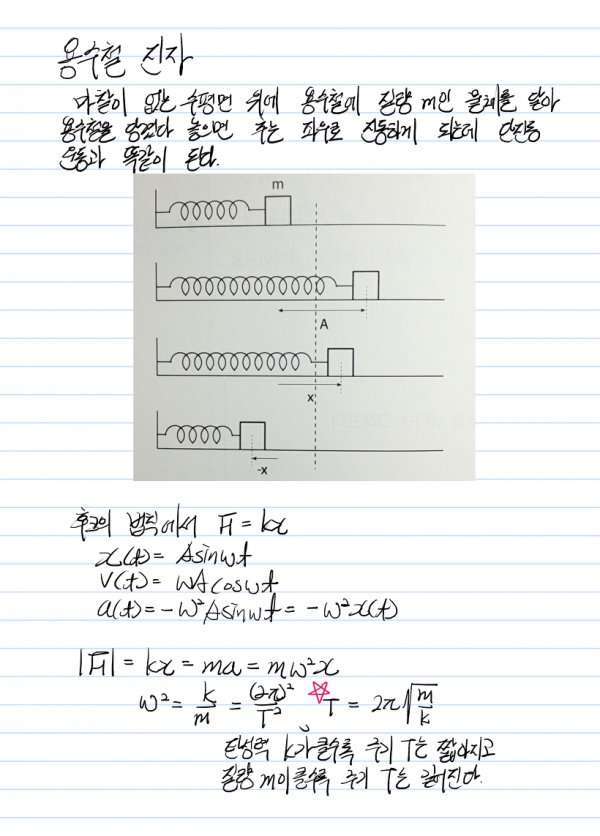 용수철 진자
마찰이 없는 수평면 위에 용수철에 질량 m인 물체를 달아
용수철을 당겼다 놓으면 추는 좌우로 진동하게 되는데 단진동
운동과 똑같이 된다.
m
A
x
-x
후크의 법칙에서 F = kx
x(t) = Asinwt
v(t) = wAcoswt
a(t) = -w²Asinwt = -w²x(t)
|F| = kx = ma = mw²x
w² = k/m = (2π)²/T² ☆ T = 2π√(m/k)
탄성력 k가 클수록 주기 T는 짧아지고
질량 m이 클수록 주기 T는 길어진다.